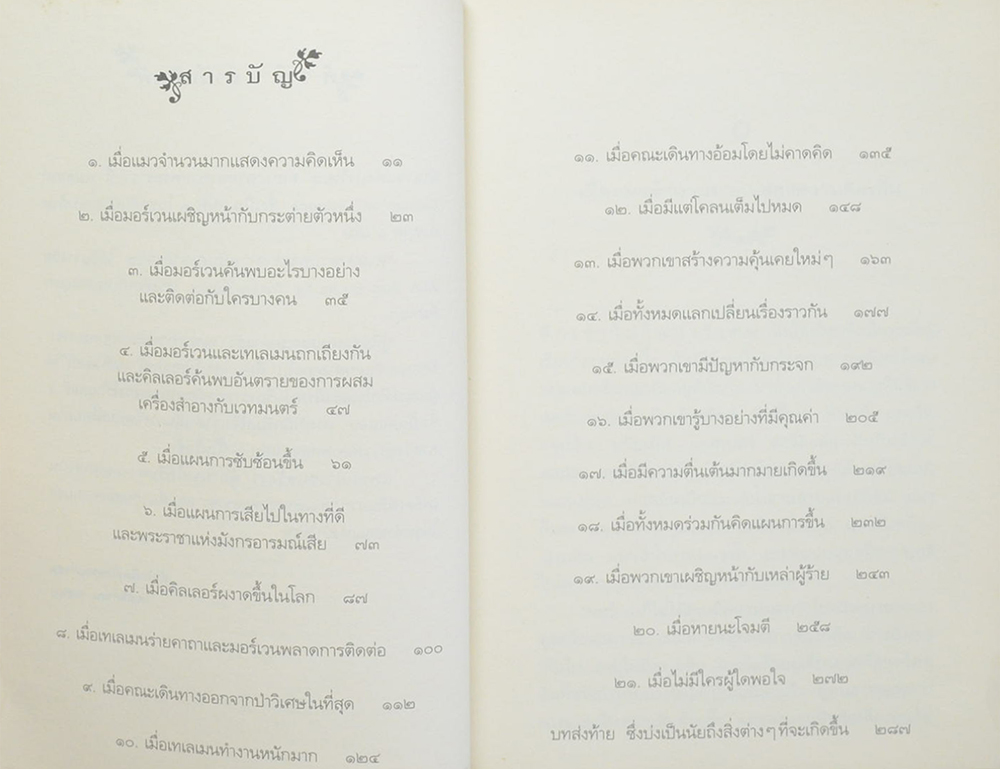 สารบัญ
๑. เมื่อแมวจำนวนมากแสดงความคิดเห็น ๑๑
๒. เมื่อมอร์เวนเผชิญหน้ากับกระต่ายตัวหนึ่ง ๒๓
๓. เมื่อมอร์เวนค้นพบอะไรบางอย่าง
และติดต่อกับใครบางคน ๓๕
๔. เมื่อมอร์เวนและเทเลเมนถกเถียงกัน
และคิลเลอร์ค้นพบอันตรายของการผสม
เครื่องสำอางกับเวทมนตร์ ๔๗
๕. เมื่อแผนการซับซ้อนขึ้น ๖๑
๖. เมื่อแผนการเสียไปในทางที่ดี
และพระราชาแห่งมังกรอารมณ์เสีย ๗๓
๗. เมื่อคิลเลอร์ผงาดขึ้นในโลก ๘๗
๘. เมื่อเทเลเมนร่ายคาถาและมอร์เวนพลาดการติดต่อ ๑๐๐
๙. เมื่อคณะเดินทางออกจากป่าวิเศษในที่สุด ๑๑๒
๑๐. เมื่อเทเลเมนทำงานหนักมาก ๑๒๔
๑๑. เมื่อคณะเดินทางอ้อมโดยไม่คาดคิด ๑๓๕
๑๒. เมื่อมีแต่โคลนเต็มไปหมด ๑๔๘
๑๓. เมื่อพวกเขาสร้างความคุ้นเคยใหม่ๆ ๑๖๓
๑๔. เมื่อทั้งหมดแลกเปลี่ยนเรื่องราวกัน ๑๗๗
๑๕. เมื่อพวกเขามีปัญหากับกระจก ๑๙๒
๑๖. เมื่อพวกเขารู้บางอย่างที่มีคุณค่า ๒๐๕
๑๗. เมื่อมีความตื่นเต้นมากมายเกิดขึ้น ๒๑๙
๑๘. เมื่อทั้งหมดร่วมกันคิดแผนการขึ้น ๒๓๒
๑๙. เมื่อพวกเขาเผชิญหน้ากับเหล่าผู้ร้าย ๒๔๓
๒๐. เมื่อหายนะโจมตี ๒๕๘
๒๑. เมื่อไม่มีใครผู้ใดพอใจ ๒๗๒
บทส่งท้าย ซึ่งบ่งเป็นนัยถึงสิ่งต่างๆที่จะเกิดขึ้น ๒๘๗